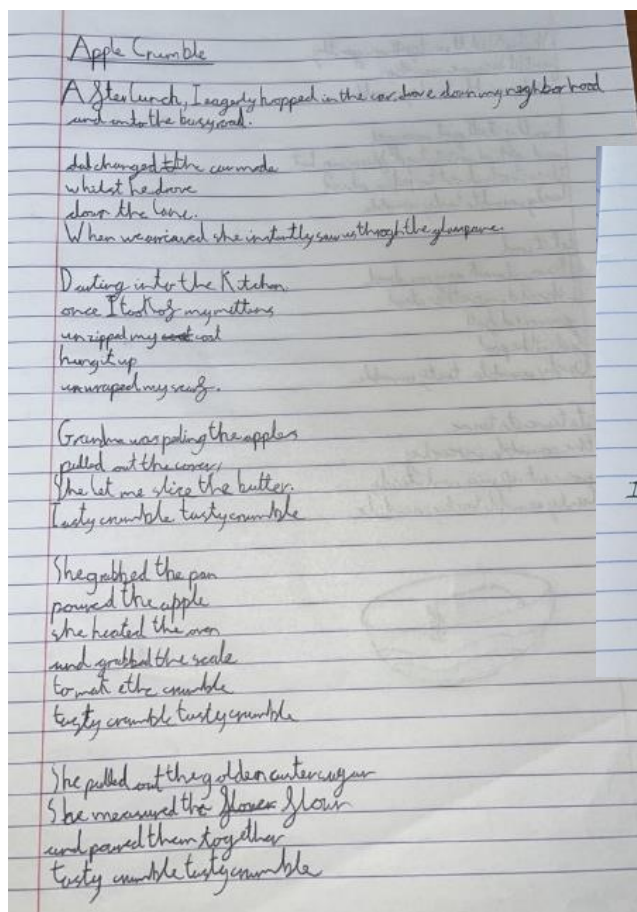 Apple Crumble
After lunch, I eagerly hopped in the car, drove down my neighborhood
and onto the busy road.
dad changed the car mode
whilst he drove
down the lane.
When we arrived she instantly saw us through the glass pane.
Darting into the Kitchen
once I took of my mittens
unzipped my coat
hung it up
unwraped my scarf.
Grandma was peling the apples
pulled out the cores,
She let me slice the butter.
Tasty crumble tasty crumble
She grabbed the pan
poured the apple
she heated the oven
and grabbed the scale
to mak e the crumble
tasty crumble tasty crumble
She pulled out the golden caster sugar
She measured the flour
and poured them together
tasty crumble tasty crumble
I